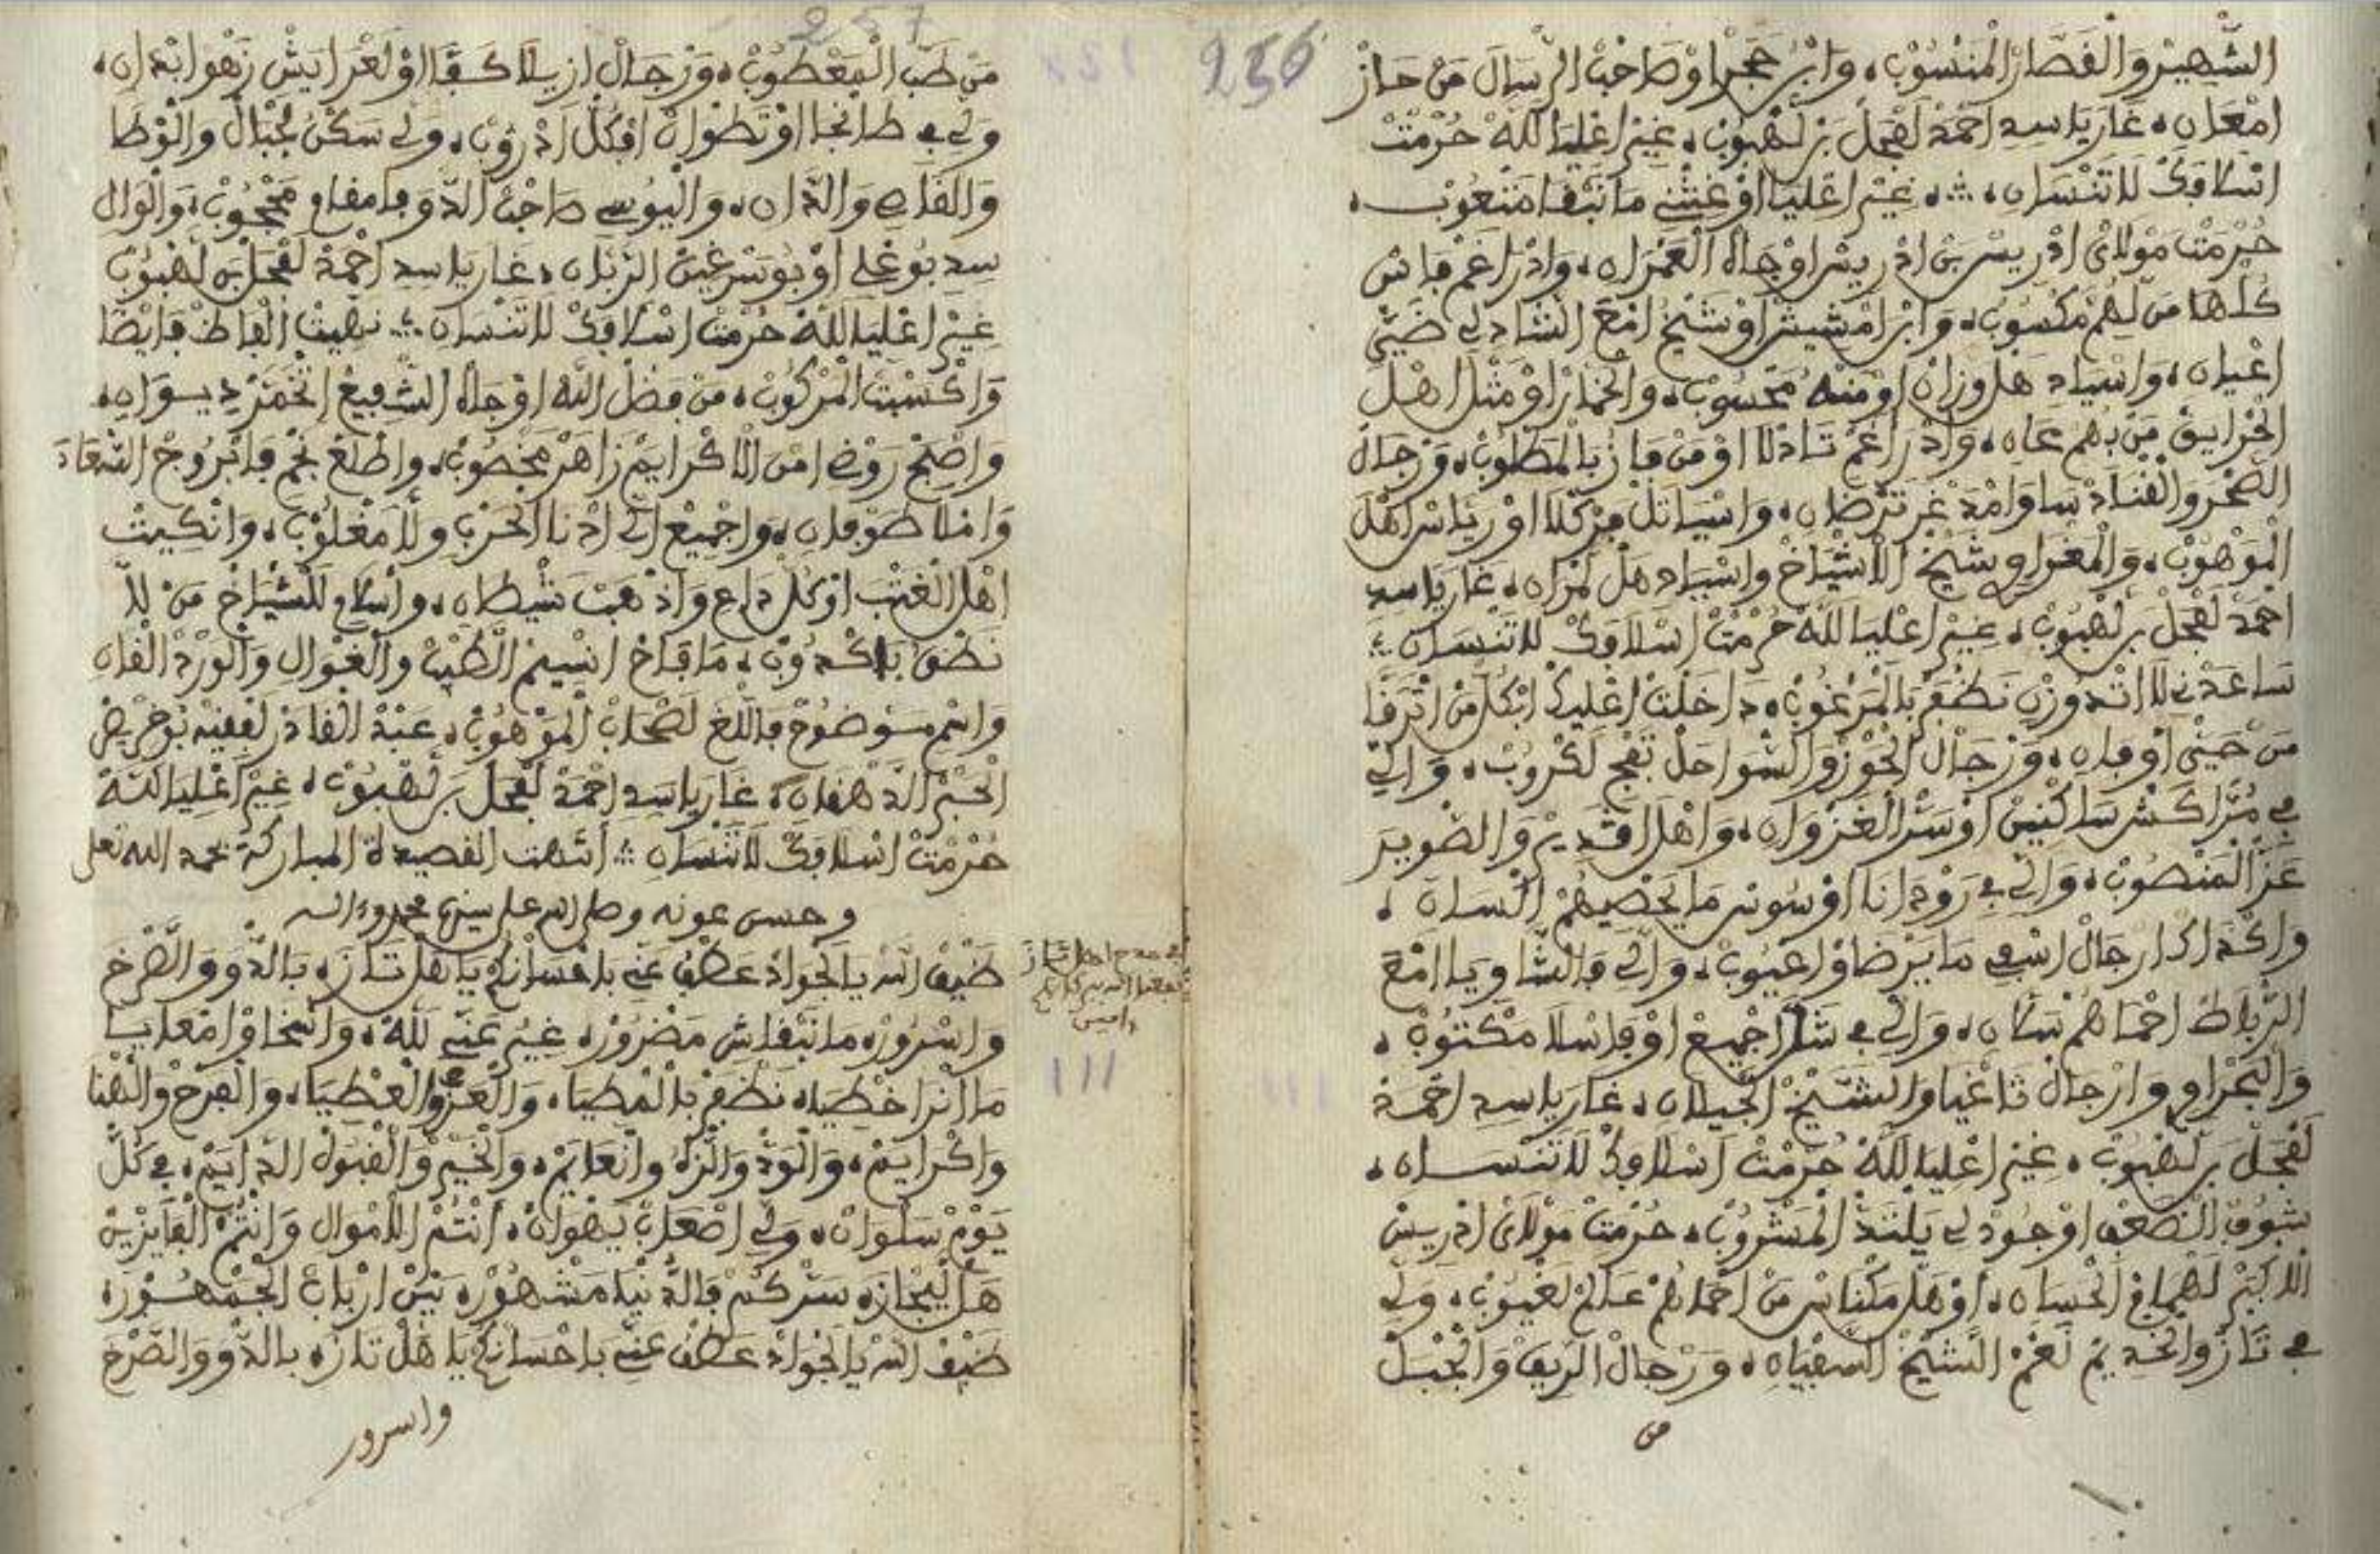 256
الشهير والقصار المنسوب، وابن حجر اوصاحب الرسال من حاز
امعان، غار يا سيد احمد لفحل بن لهبوب، غير اعليا لله حرمت
اسلافك لا تنسان، غير اعليا اوغثني ما نبقا متعوب،
حرمت مولاي ادريس بن ادريس اوجاه العمران، وادراغم فاس
كلها من لهم مكسوب، وابن امشيش اوشيخ امع الشادلي ضي
اعيان، واسياد هل وزان اومنه محسوب، والخمار اومثل اهل
الخرايق من بهم عان، وادراغم تادلا اومن فاز بالمطلوب، ورجال
الصخر والقناد سا وامد غر ترضان، واسيا تل مركلا اورياس اهل
الموهوب، والمغراوي شيخ الاشياخ واسياد هل لمران، غار يا سيد
احمد لفحل بن لهبوب، غير اعليا لله حرمت اسلافك لا تنسان
ساعدني لا اتدوزن نظفر بالمرغوب، داخلت اعليك ابكل من اترفا
من حيني اوفان، ورجال الحوز والسواحل تفج لكروب، والي
في مراكش ساكنين اوسر الغزوان، واهل اقديم والصوير
عز المنصوب، والي في رودانا اوسوس ما يحصيهم السان،
واكداك ارجال اسفي ما يرضاو اعيوب، والي فالشاويا امع
الرباط احماهم بسان، والي في شلا اجميع اوفاسلا مكتوب،
والبحراوي وارجال تاغيا والشيخ الجيلان، غار يا سيد احمد
لفحل بن لهبوب، غير اعليا لله حرمت اسلافك لا تنسان،
شوف الضعف اوجود لي يلتذ المشروب، حرمت مولاي ادريس
الاكبر لهمام الحسان، اوهل مكناس من احماهم علام لغيوب، ولي
في تاز والخديم نعم الشيخ السفيان، ورجال الريف والجبل
من
257
من طب المعطوب، ورجال ازيلا كفا اولعرايش زهو ابدان،
ولي في طانجا اوتطوان افكل ادروب، ولي سكن لجبال والوطا
والقاصي والدان، واليوسي صاحب الدوفا مقام محجوب، والوال
سيد بوعلي اوبوسرغين الزيان، غار يا سيد احمد لفحل بن لهبوب
غير اعليا لله حرمت اسلافك لا تنسان نهيت الفاظ فايضا
واكسبت المركوب، من فضل الله اوجاه الشفيع انخمر ديوان،
واصبح روضي امن الاكرايم زاهر مخصوب، واطلع نجم فابروج السعاد
وامنا طوفان، واجميع الي ادنا الحرب ولا مغلوب، وانكيت
اهل الغتب اوكل داع واذهبت شيطان، واسلام للشياخ من لا
نطق باكدوب، ما فاح انسيم الطيب والغوال والورد القان
واسم سوضوح فاللغ لصحاب الموهوب، عبد القادر لفقيه بوخريص
الحبر الدهقان، غار يا سيد احمد لفحل بن لهبوب، غير اعليا لله
حرمت اسلافك لا تنسان انتهت القصيدة المباركة بحمد الله تعلى
وحسن عونه وصلى الله على سيدنا محمد وءاله
في مدح اهل تازا
نفعنا الله ببركاتهم
ءامين
ضيف الله يا لجواد عطف عني باحسانكم يا هل تازه بالدو والصرخ
واسروره ما نبقاش مضروره غير عني لله، والسخا وامعاب
ما انرا خطيا، نظفر بالمطيا، والعز والعطيا، والفرح والهنا
واكرايم، والود والزه وانعايم، والخير والقبول الدايم، في كل
يوم سلوان، ولي اصعاب يهوان، انتم الاموال وانتم الفايزين
هل ليجازه سركم فالدنيا مشهوره بين ارباب الجمهوره
ضيف الله يا لجواد عطف عني باحسانكم يا هل تازه بالدو والصرخ
واسرور